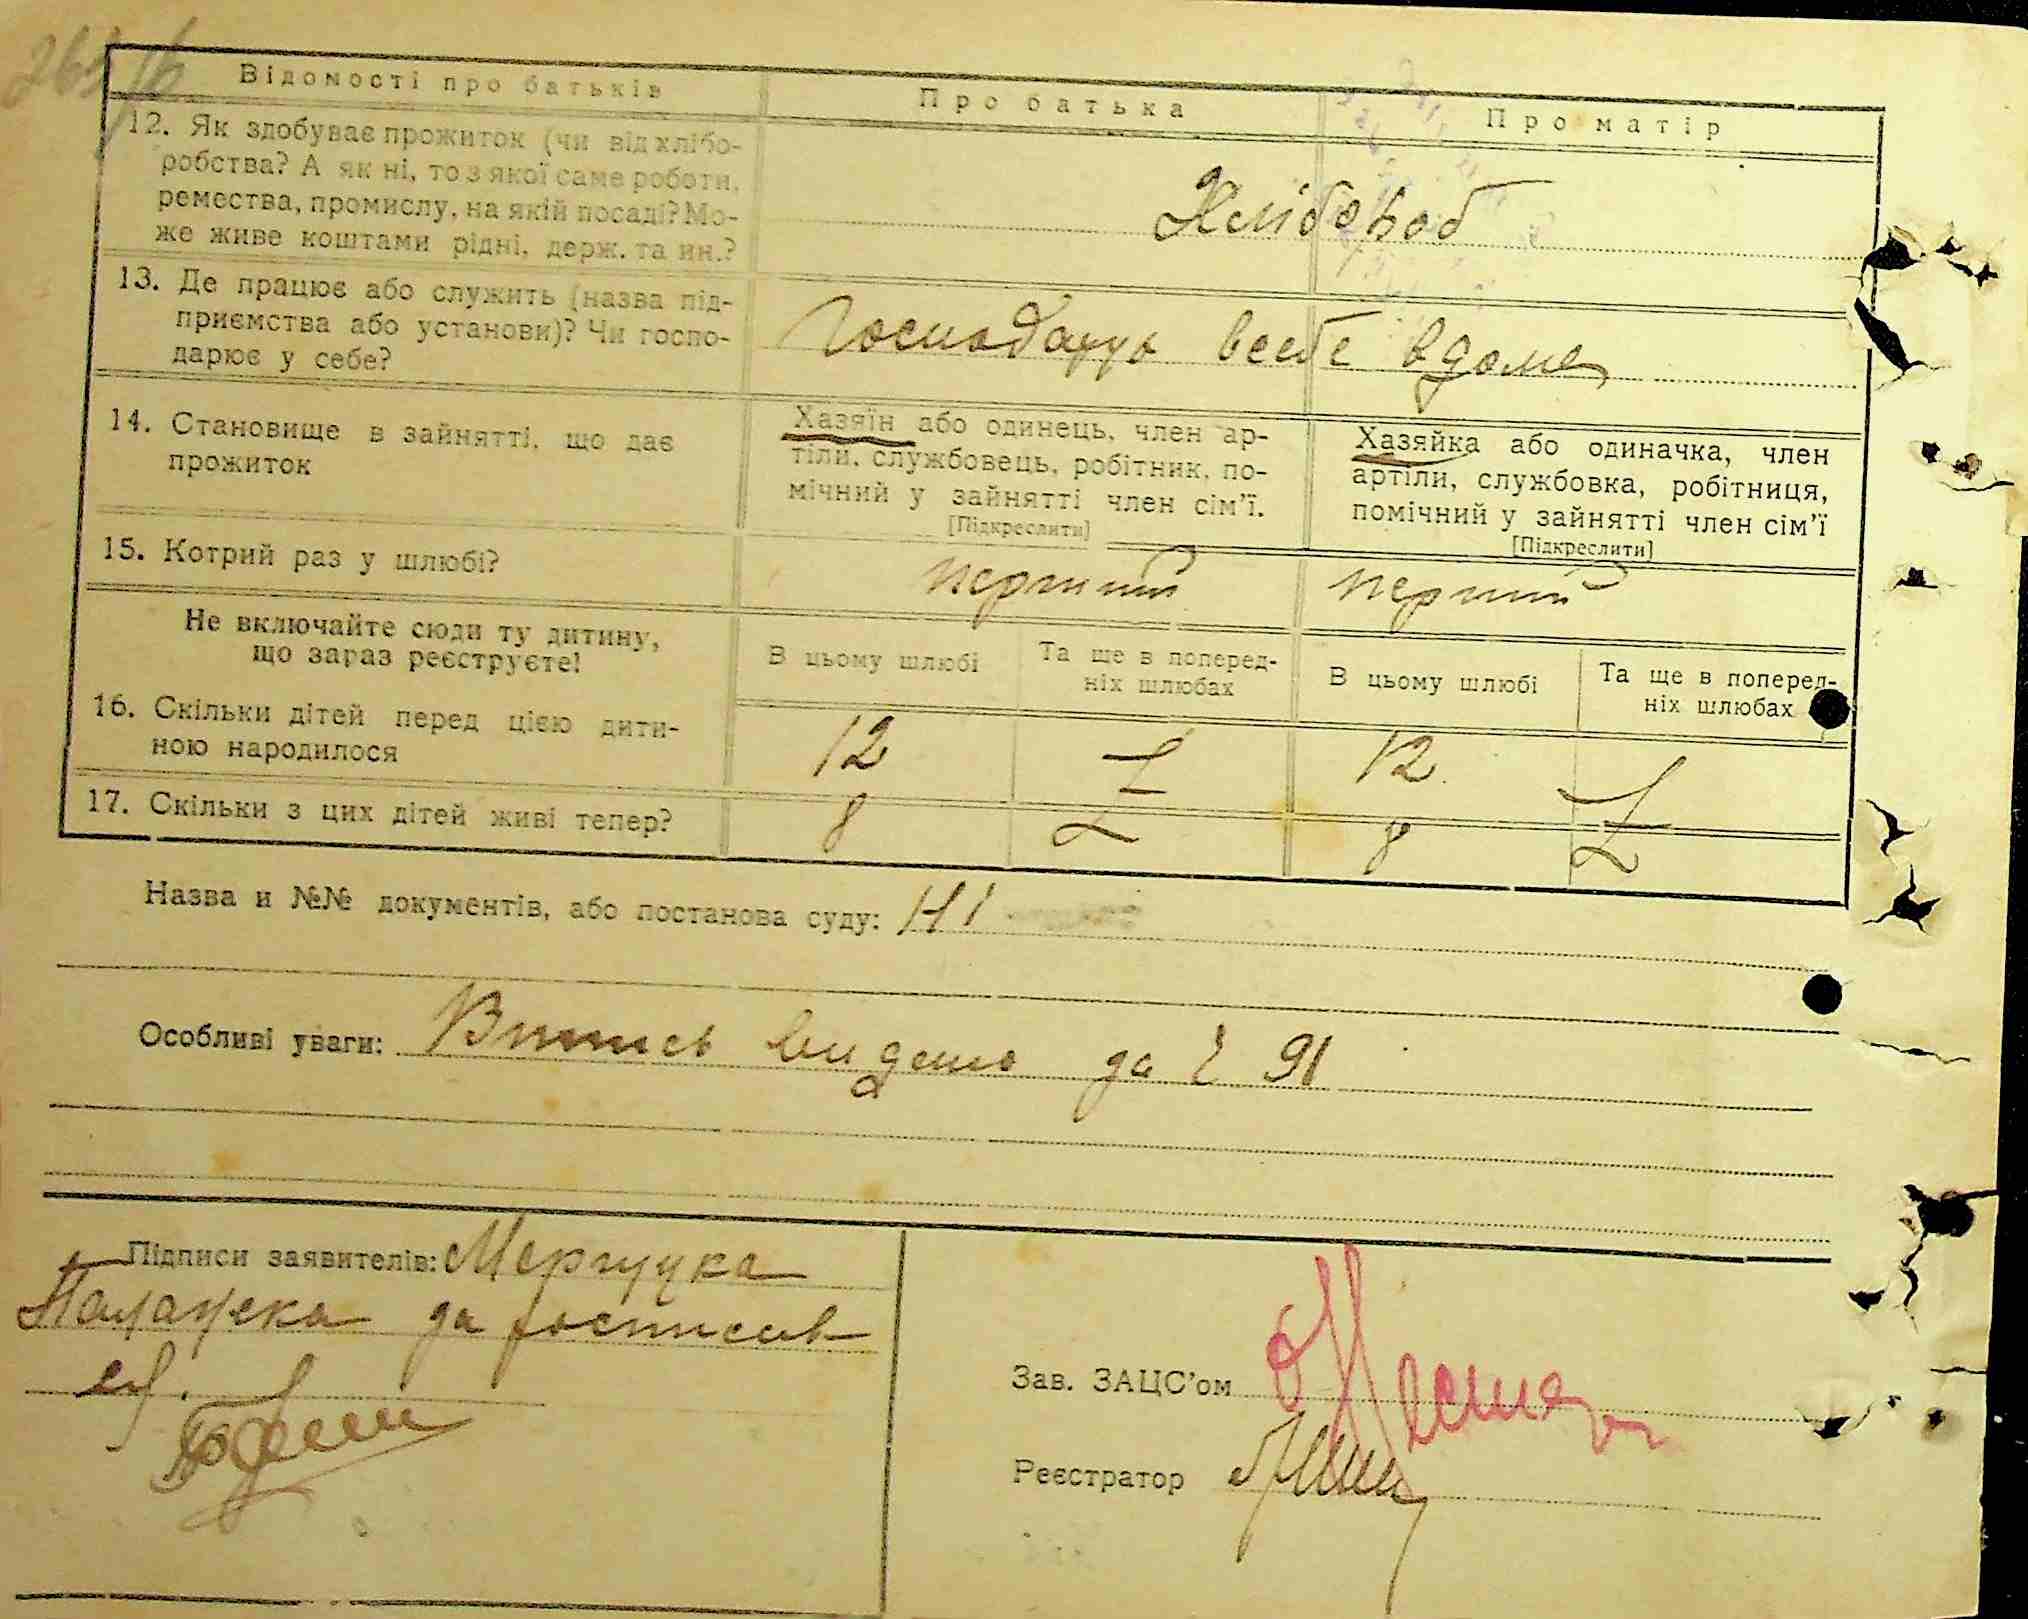 Відомості про батьків
Про батька
Про матір
12. Як здобуває прожиток (чи від хлібо-
робства? А як ні, то з якої саме роботи,
ремества, промислу, на якій посаді? Мо-
же живе коштами рідні, держ. та ин.?
Хлібороб
13. Де працює або служить (назва під-
приємства або установи)? Чи госпо-
дарює у себе?
Господарує всебе вдома
14. Становище в зайнятті, що дає
прожиток
Хазяїн або одинець, член ар-
тіли, службовець, робітник, по-
мічний у зайнятті член сім'ї.
[Підкреслити]
Хазяйка або одиначка, член
артіли, службовка, робітниця,
помічний у зайнятті член сім'ї
[Підкреслити]
15. Котрий раз у шлюбі?
перший
перший
Не включайте сюди ту дитину,
що зараз реєструєте!
В цьому шлюбі
Та ще в поперед-
ніх шлюбах
В цьому шлюбі
Та ще в поперед-
ніх шлюбах
16. Скільки дітей перед цією дити-
ною народилося
12
12
17. Скільки з цих дітей живі тепер?
8
8
Назва и №№ документів, або постанова суду: Ні
Особливі уваги: Випись видано за 91
Підписи заявителів:
за
Зав. ЗАЦС'ом
Реєстратор